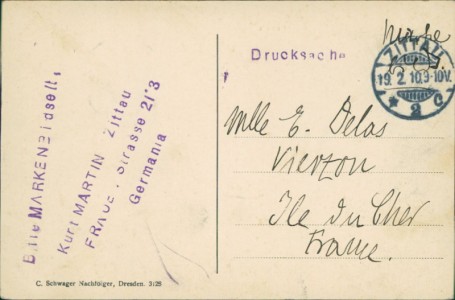 Bitte MARKENbildseit.
Kurt MARTIN Zittau
Strasse 21·3
Germania
Drucksache
Marke
ZITTAU
19. 2. 10. 9-10V.
* 2 C
Mlle E. Delas
Vierzon
Ile du Cher
France.
C. Schwager Nachfolger, Dresden. 3125